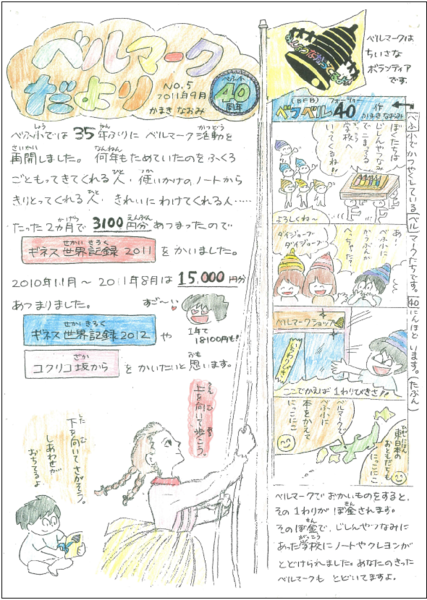 ベルマーク
だより
NO.5
2011年9月
かまき なおみ
べふ小
40
周年
ベルマークは
ちいさな
ボランティア
です。
べふ小では35年ぶりにベルマーク活動を
再開しました。何年もためていたのをふくろ
ごともってきてくれる人・使いかけのノートから
きりとってくれる人・きれいにわけてくれる人……
たった2ヵ月で3100円分あつまったので
ギネス世界記録2011をかいました。
2010年11月〜2011年8月は15,000円分
あつまりました。
すご〜い
1年で
18100円も!!
ギネス世界記録2012や
コクリコ坂から
をかいたいと思います。
上を向いて歩こう
下を向いてさがそう。
しあわせが
おちてるよ
ベフベル40
作
かまきなおみ
べふ小でかつやくしているベルマークたちです。40にんほどいます。(たぶん)
ぼくたちは
じしんやつなみ
でこまってる
学校へ
いってくるね!!
よろしくね〜
あ!
べふ小に
かつぶんが
へっちゃた
ダイジョーブ
ダイジョーブ
ベルマークショップ
いちわりびき
ここでかえば1わりびきさ!!
ベルマークで
本をかえて
べふ小に
にこにこ
東日本の
おともだちも
にっこにこ
ベルマークでおかいものをすると、
その1わりがぼ金されます。
そのぼ金で、じしんやつなみに
あった学校にノートやクレヨンが
とどけられました。あなたのきった
ベルマークもとどいてますよ。